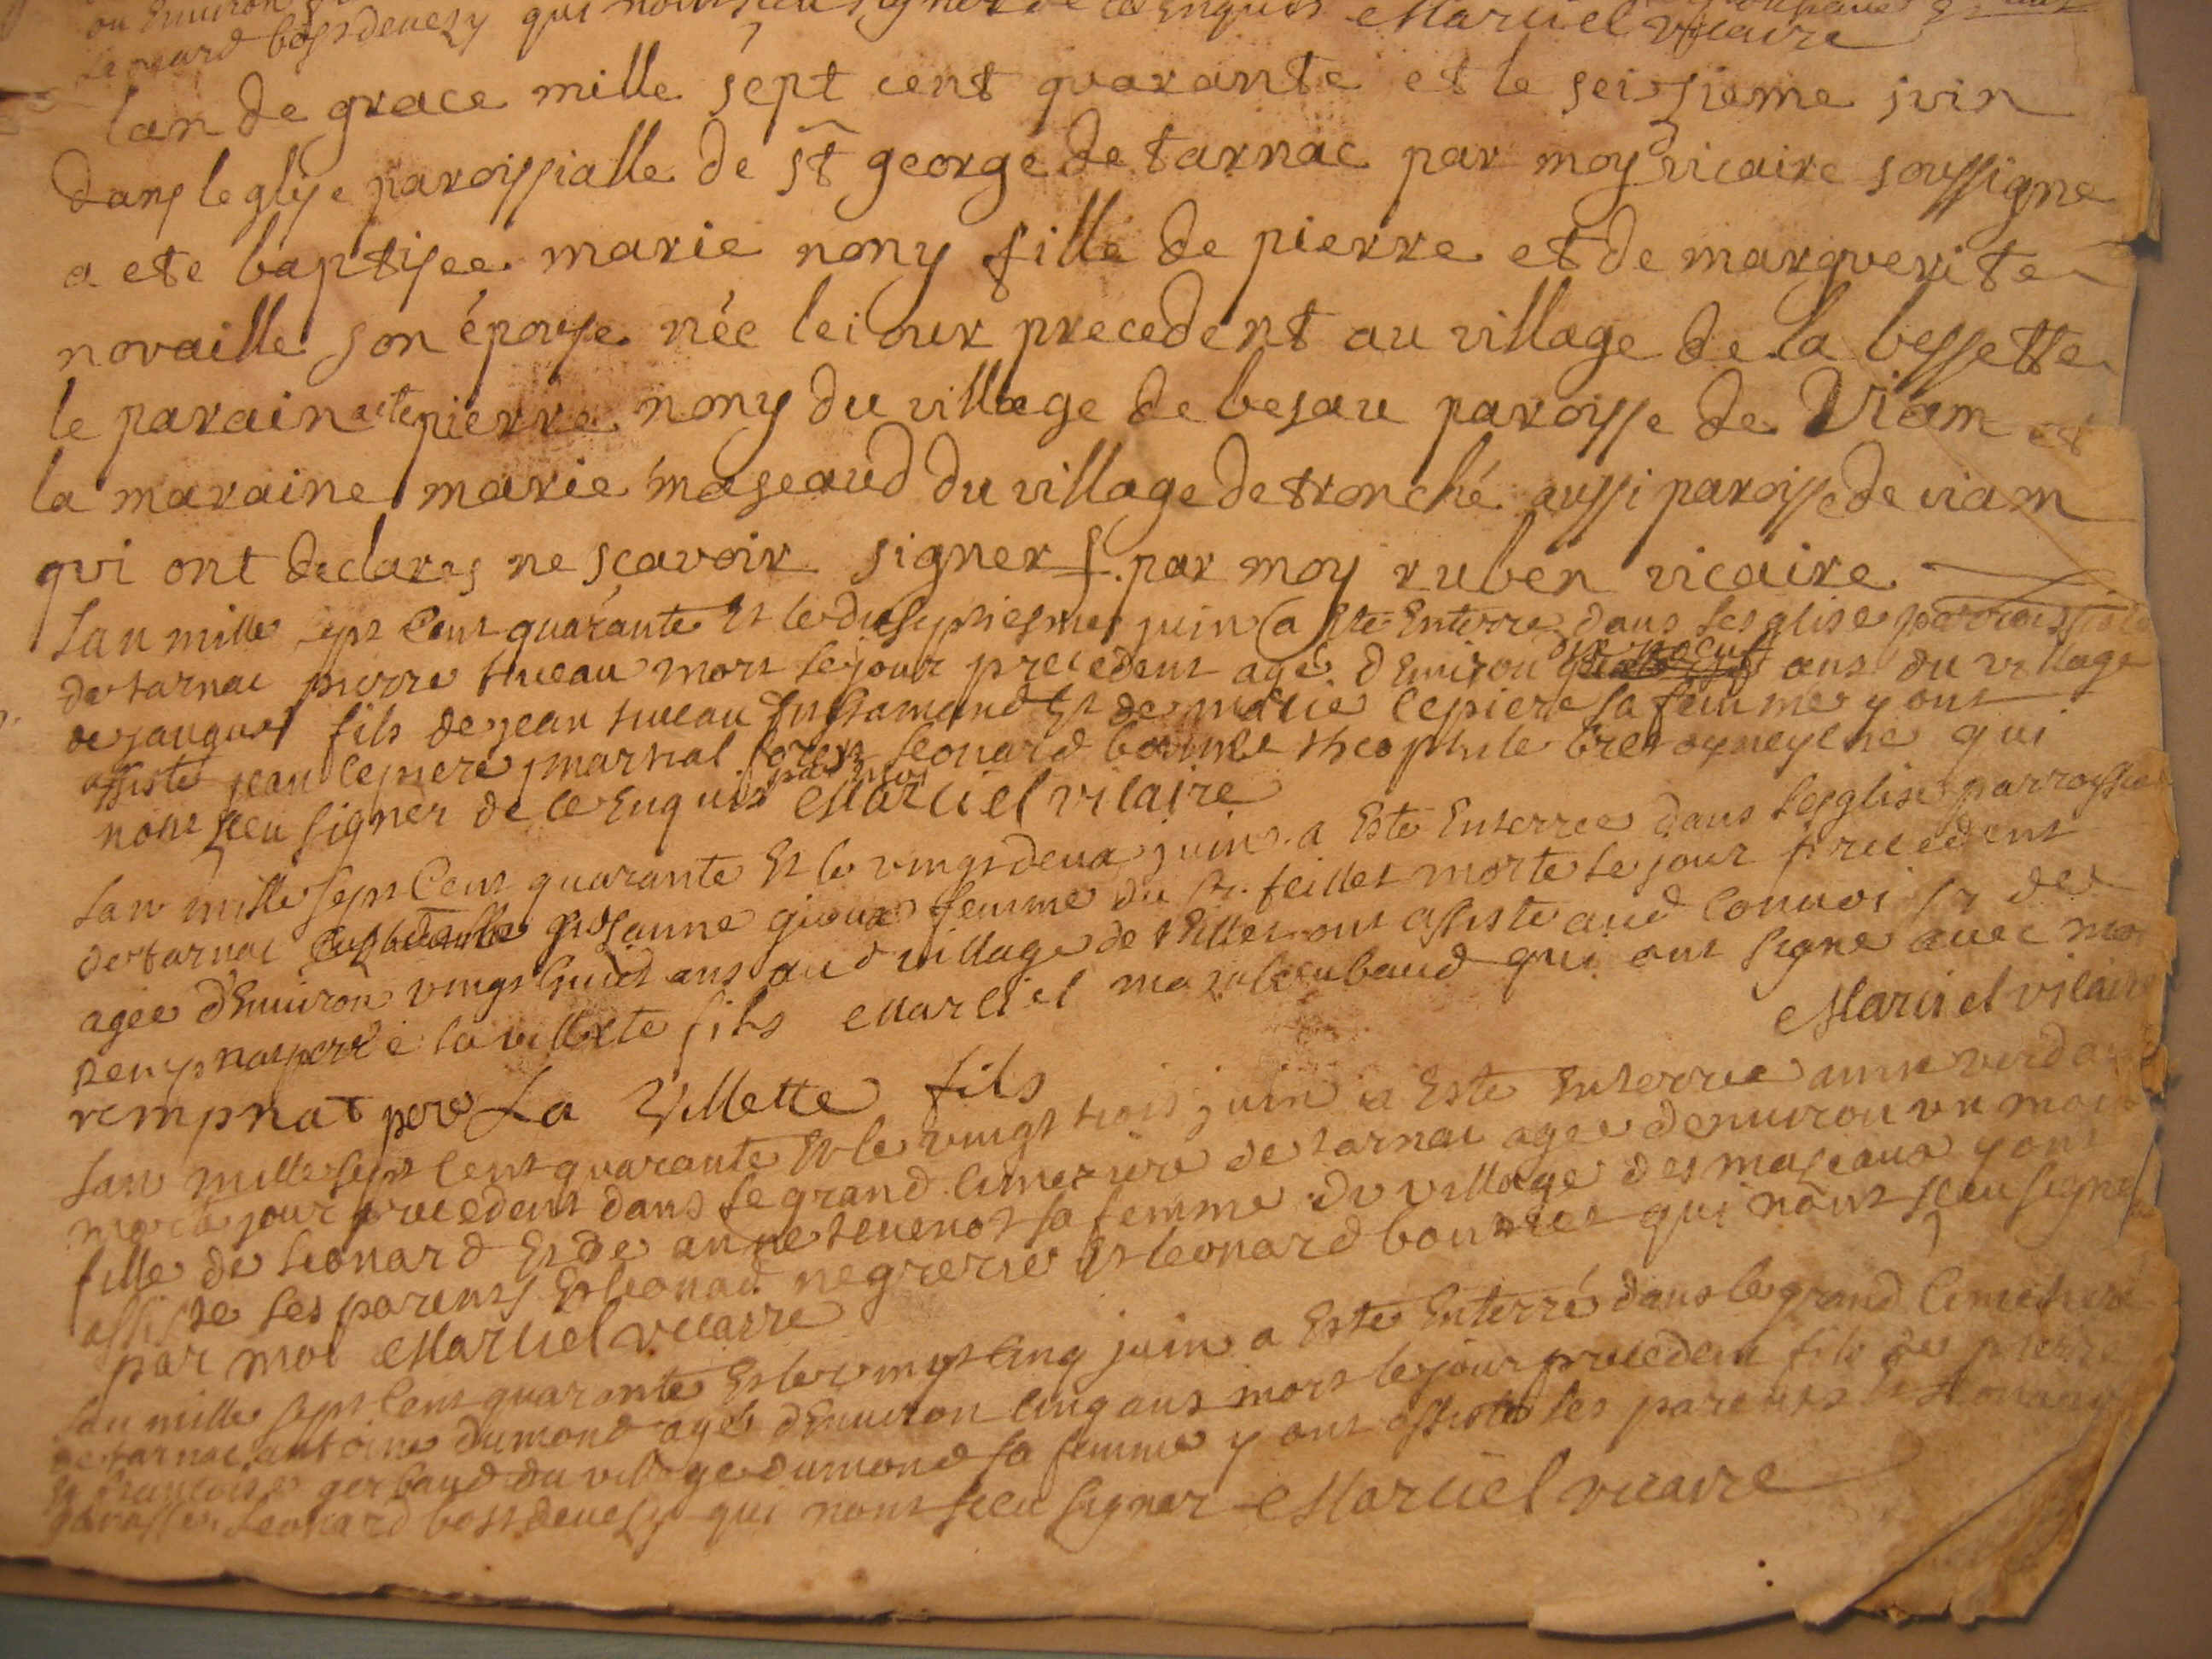 ou Environ
Leonard bossdenesy qui nont sceu signer de ce Enquis Marciel vicaire
lan de grace mille sept cent quarante et le seisieme juin
dans leglise paroissialle de st george de tarnac par moy vicaire soussigne
a ete baptisee marie nony fille de pierre et de marguerite
novaille son épouse née leiour precedent au village de la bessette
le parain a ete pierre nony du village de besau paroisse de Viam et
la maraine marie maseaud du village de tronché aussi paroisse de viam
qui ont declares ne scavoir signer f. par moy ruben vicaire
Lan mille sept Cent quarante Et le dixseptiesme juin a Este Enterre dans Lesglise
de tarnac pierre tuueau mort le jour precedent agé dEnuiron dix neuf ans du village
de jauguet fils de jean tuueau Et de marie lepiere sa femme y ont
assiste jean lepiere martial leonard theophile qui
nont sceu signer de ce Enquis par moy Marciel vicaire
Lan mille sept Cent quarante Et le vingtdeux juin a Este Enterree dans Lesglise parroissialle
de tarnac susanne gioux femme du sr. feillet morte le jour precedent
agee dEnuiron vingt huict ans aud village de ont assiste aud Conuoi sr de
rempnat pere la villette fils Marciel qui ont signe auec moi
Marciel vicaire
rempnat pere La Villette fils
Lan mille sept Cent quarante Et le vingt trois juin a Este Enterree anne
morte jour precedent dans le grand Cimetiere de tarnac agee denuiron un mois
fille de Leonard Et de anne teuenot sa femme du village des maseaux y ont
assiste ses parents Et leonard negrerie Et leonard qui nont sceu signer
par moi Marciel vicaire
Lan mille sept Cent quarante Et le vingt cinq juin a Este Enterré dans le grand Cimetiere
de tarnac antoine dumond agé dEnuiron cinq ans mort le jour precedent fils de pierre
Et francoise gerbaud du village dumond sa femme y ont assiste ses parents
Leonard bossdenesy qui nont sceu signer Marciel vicaire